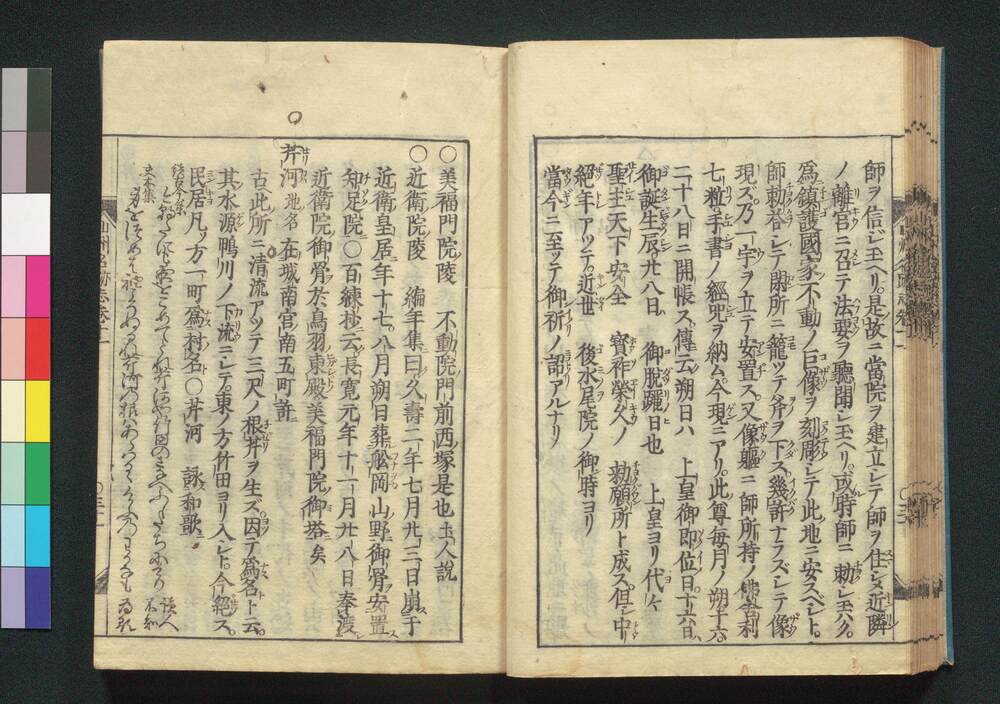 師ヲ信ジ玉ヘリ。是故ニ當院ヲ建立シテ師ヲ住シメ近隣
ノ離宮ニ召テ法要ヲ聽聞シ玉ヘリ。或時師ニ勅シ玉ハク。
爲鎮護國家不動ノ巨像ヲ刻彫シテ此地ニ安スベシト。
師勅答シテ閑所ニ籠ツテ斧ヲ下ス。幾許ナラズシテ像
現ズ。乃一宇ヲ立テ安置ス。又像軀ニ師所持ノ佛舎利
七粒手書ノ經咒ヲ納ム。今現ニアリ。此尊毎月ノ朔十六。
二十八日ニ開帳ス。傳云朔日ハ 上皇御即位日。十六日。
御誕生辰。廿八日。 御脱躧日也 上皇ヨリ代々
聖主天下安全 寳祚榮久ノ 勅願所ト成ス。但シ中
絶年アツテ。近世 後水尾院ノ御時ヨリ
當今ニ至ツテ御祈ノ認アルナリ
○美福門院陵 不動院門前西塚是也土人説
○近衛院陵 編年集曰久壽二年七月廿三日崩于
近衛皇居年十七。八月朔日葬舩岡山野御骨安置
知足院○百練抄云長寛元年十一月廿八日奉渡
近衛院御骨於鳥羽東殿美福門院御塔矣
○芹河 地名 在城南宮南五町許
古此所ニ清流アツテ三尺ノ根芹ヲ生ズ因テ爲名ト云。
其水源鴨川ノ下流ニシテ。東ノ方竹田ヨリ入シト。今絶ス。
民居凡ソ方一町爲村名○芹河 詠和歌